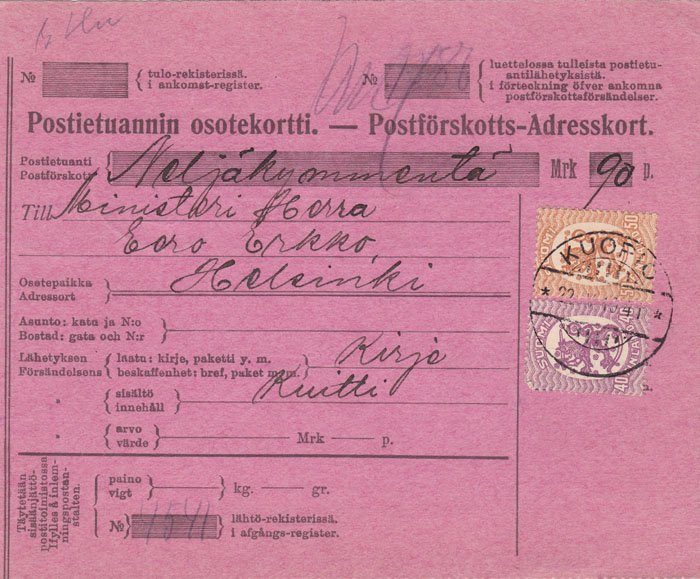 № tulo-rekisterissä.
i ankomst-register.
№ luettelossa tulleista postietu-
antilähetyksistä.
i förteckning öfver ankomna
postförskottsförsändelser.
Postietuannin osotekortti. — Postförskotts-Adresskort.
Postietuanti
Postförskott Neljäkymmentä Mrk 90 p.
Till Ministeri Herra
Eero Erkko,
Osotepaikka
Adressort Helsinki
Asunto: katu ja N:o
Bostad: gata och N:r
Lähetyksen laatu: kirje, paketti y. m. Kirje
Försändelsens beskaffenhet: bref, paket m. m.
Kuitti
" sisältö
innehåll
" arvo
värde Mrk p.
Täytetään
sisäänjättö-
postitoimistossa
Ifylles å inlem-
ningspostan-
stalten.
paino
vigt kg. gr.
№ 1541 lähtö-rekisterissä.
i afgångs-register.
50
KUOPIO
SUOMI FINLAND
40 40